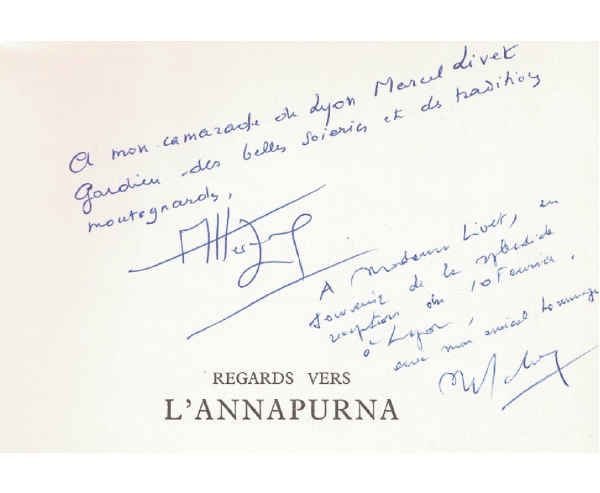 A mon camarade de Lyon Marcel Livet
Gardien des belles soieries et des traditions
montagnards,
A Madame Livet, en
souvenir de la splendide
reception du 10 Fevrier,
à Lyon,
avec mon amical hommage
REGARDS VERS
L'ANNAPURNA